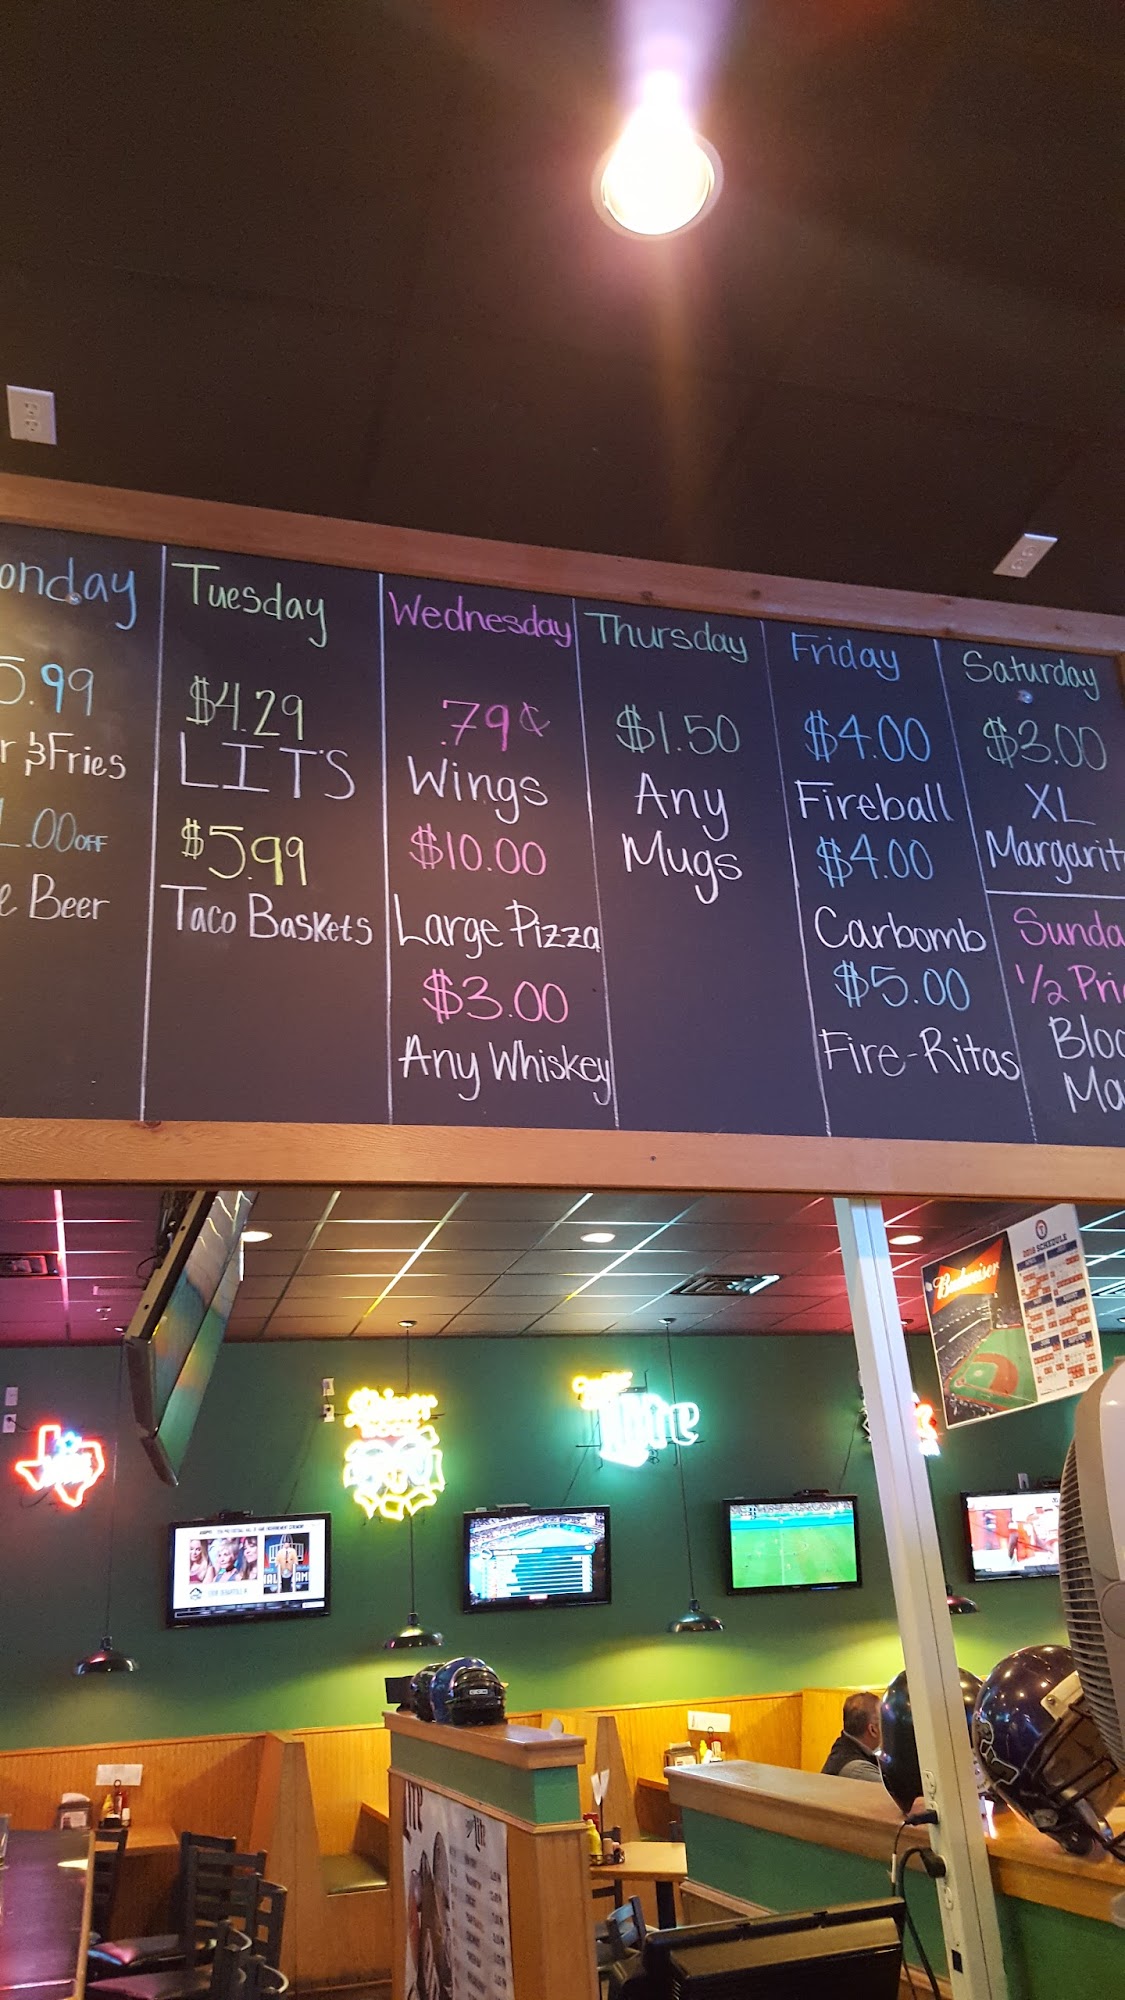 onday
5.99
r & Fries
1.00 OFF
e Beer
Tuesday
$4.29
LIT'S
$5.99
Taco Baskets
Wednesday
.79¢
Wings
$10.00
Large Pizza
$3.00
Any Whiskey
Thursday
$1.50
Any
Mugs
Friday
$4.00
Fireball
$4.00
Carbomb
$5.00
Fire-Ritas
Saturday
$3.00
XL
Margarit
Sunda
1/2 Pri
Bloo
Ma
Budweiser
2016 SCHEDULE
Shiner
Miller
Lite
Lite